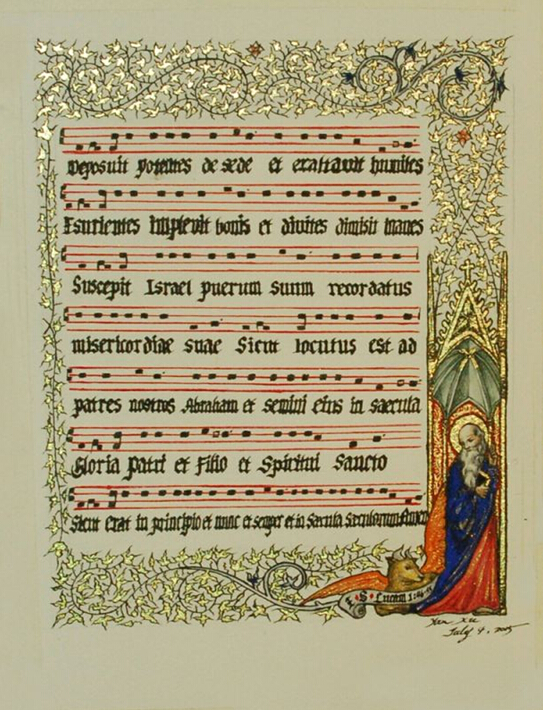 Deposuit potentes de sede et exaltavit humiles
Esurientes implevit bonis et divites dimisit inanes
Suscepit Israel puerum suum recordatus
misericordiae suae Sicut locutus est ad
patres nostros Abraham et semini eius in saecula
Gloria Patri et Filio et Spiritui Sancto
Sicut erat in principio et nunc et semper et in Saecula Saeculorum Amen
S Lucam 1:46-55
Yan Xu
July 4,